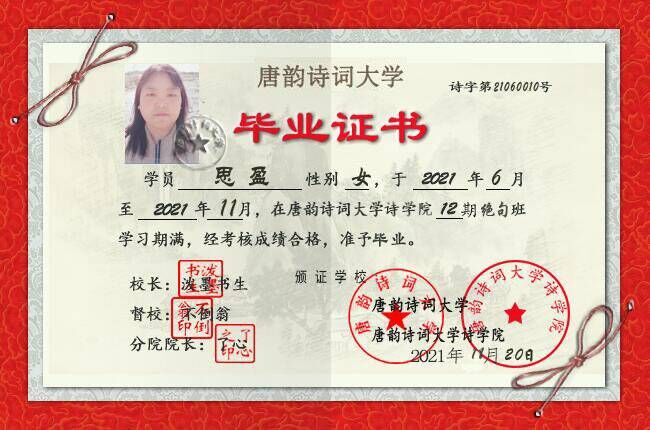 唐韵诗词大学
诗字第21060010号
毕业证书
学员 思盈 性别 女，于 2021 年 6 月
至 2021 年 11月，在唐韵诗词大学诗学院 12 期绝句班
学习期满，经考核成绩合格，准予毕业。
校长：泼墨书生
颁证学校：
督校：不倒翁
唐韵诗词大学
分院院长：了心
唐韵诗词大学诗学院
2021年 11月 20日
泼墨书生
不倒翁印
了心之印
唐韵诗词大学
唐韵诗词大学诗学院